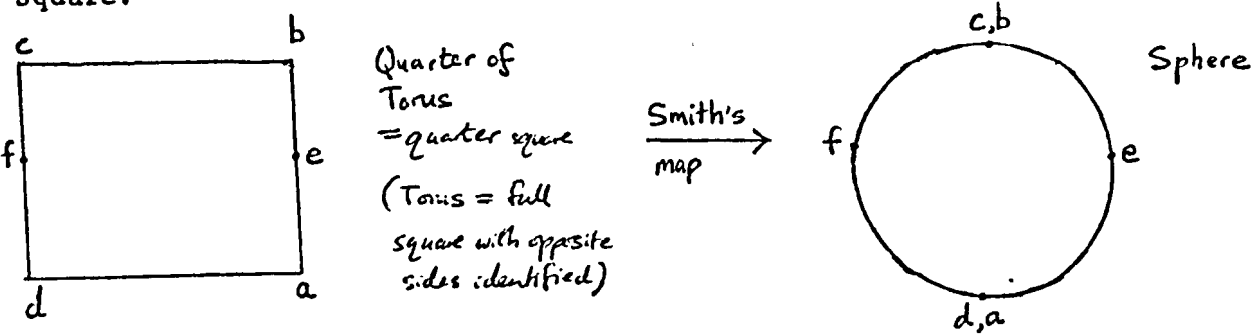 square.
c
b
f
e
d
a
Quarter of
Torus
= quarter square
(Torus = full
square with opposite
sides identified)
Smith's
map
c,b
f
e
d,a
Sphere